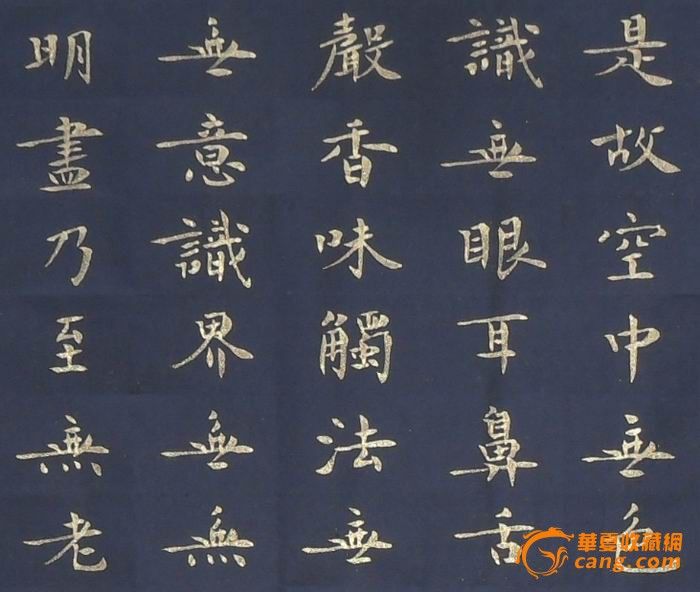 是故空中無色
識無眼耳鼻舌
聲香味觸法無
無意識界無無
明盡乃至無老
華夏收藏網
cang.com